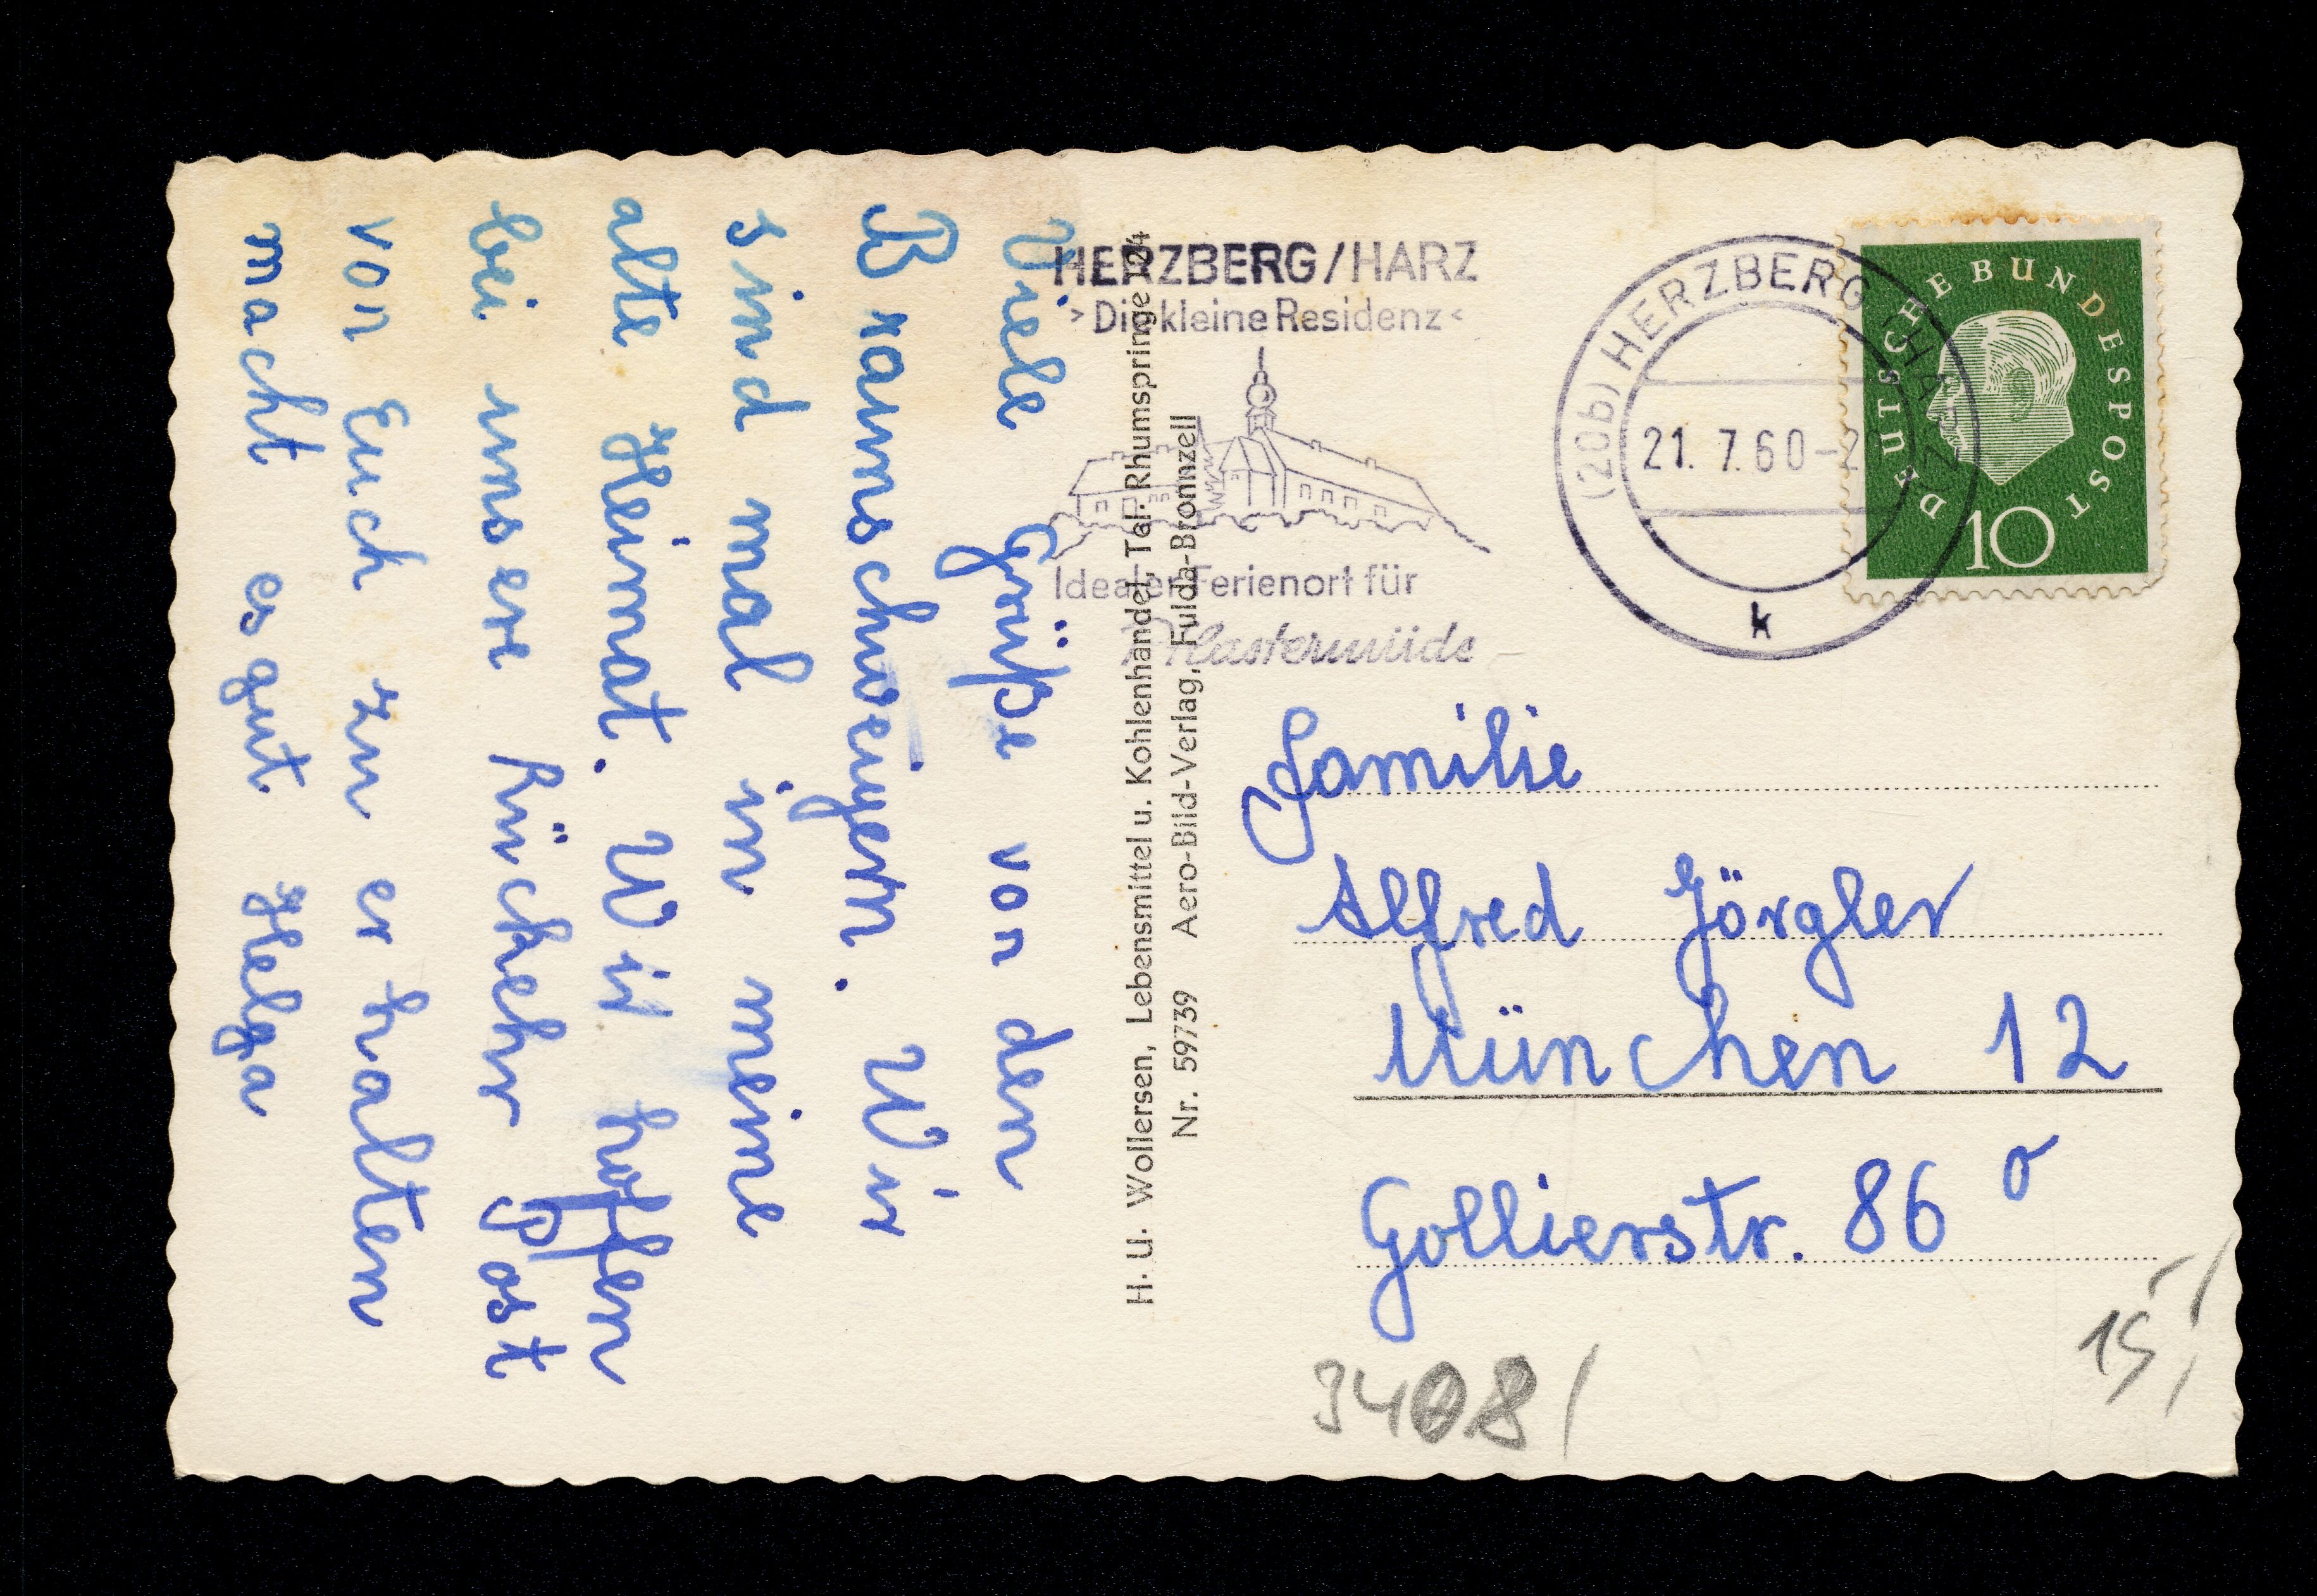 Viele Grüße von den
Braunschweigern. Wir
sind mal in meine
alte Heimat. Wir hoffen
bei unsere Rückehr Post
von Euch zu erhalten
macht es gut Helga
H. u. Wollersen, Lebensmittel u. Kohlenhandel, Tel. Rhumspringe 124
Nr. 59739 Aero-Bild-Verlag, Fulda-Bronnzell
HERZBERG/HARZ
>Die kleine Residenz<
Idealer Ferienort für
Hastemüde
(20b) HERZBERG (HARZ)
21. 7. 60-2
k
DEUTSCHE BUNDESPOST
10
Familie
Alfred Jörgler
München 12
Gollierstr. 86 o
3408/
15,